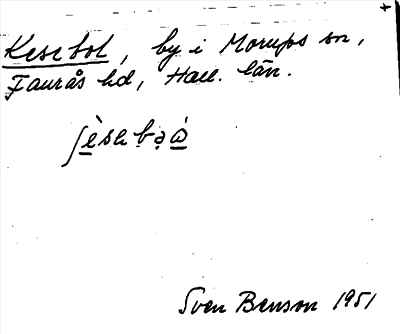 Kesebol, by i Morups sn,
Faurås hd, Hall. län.
Sven Benson 1951